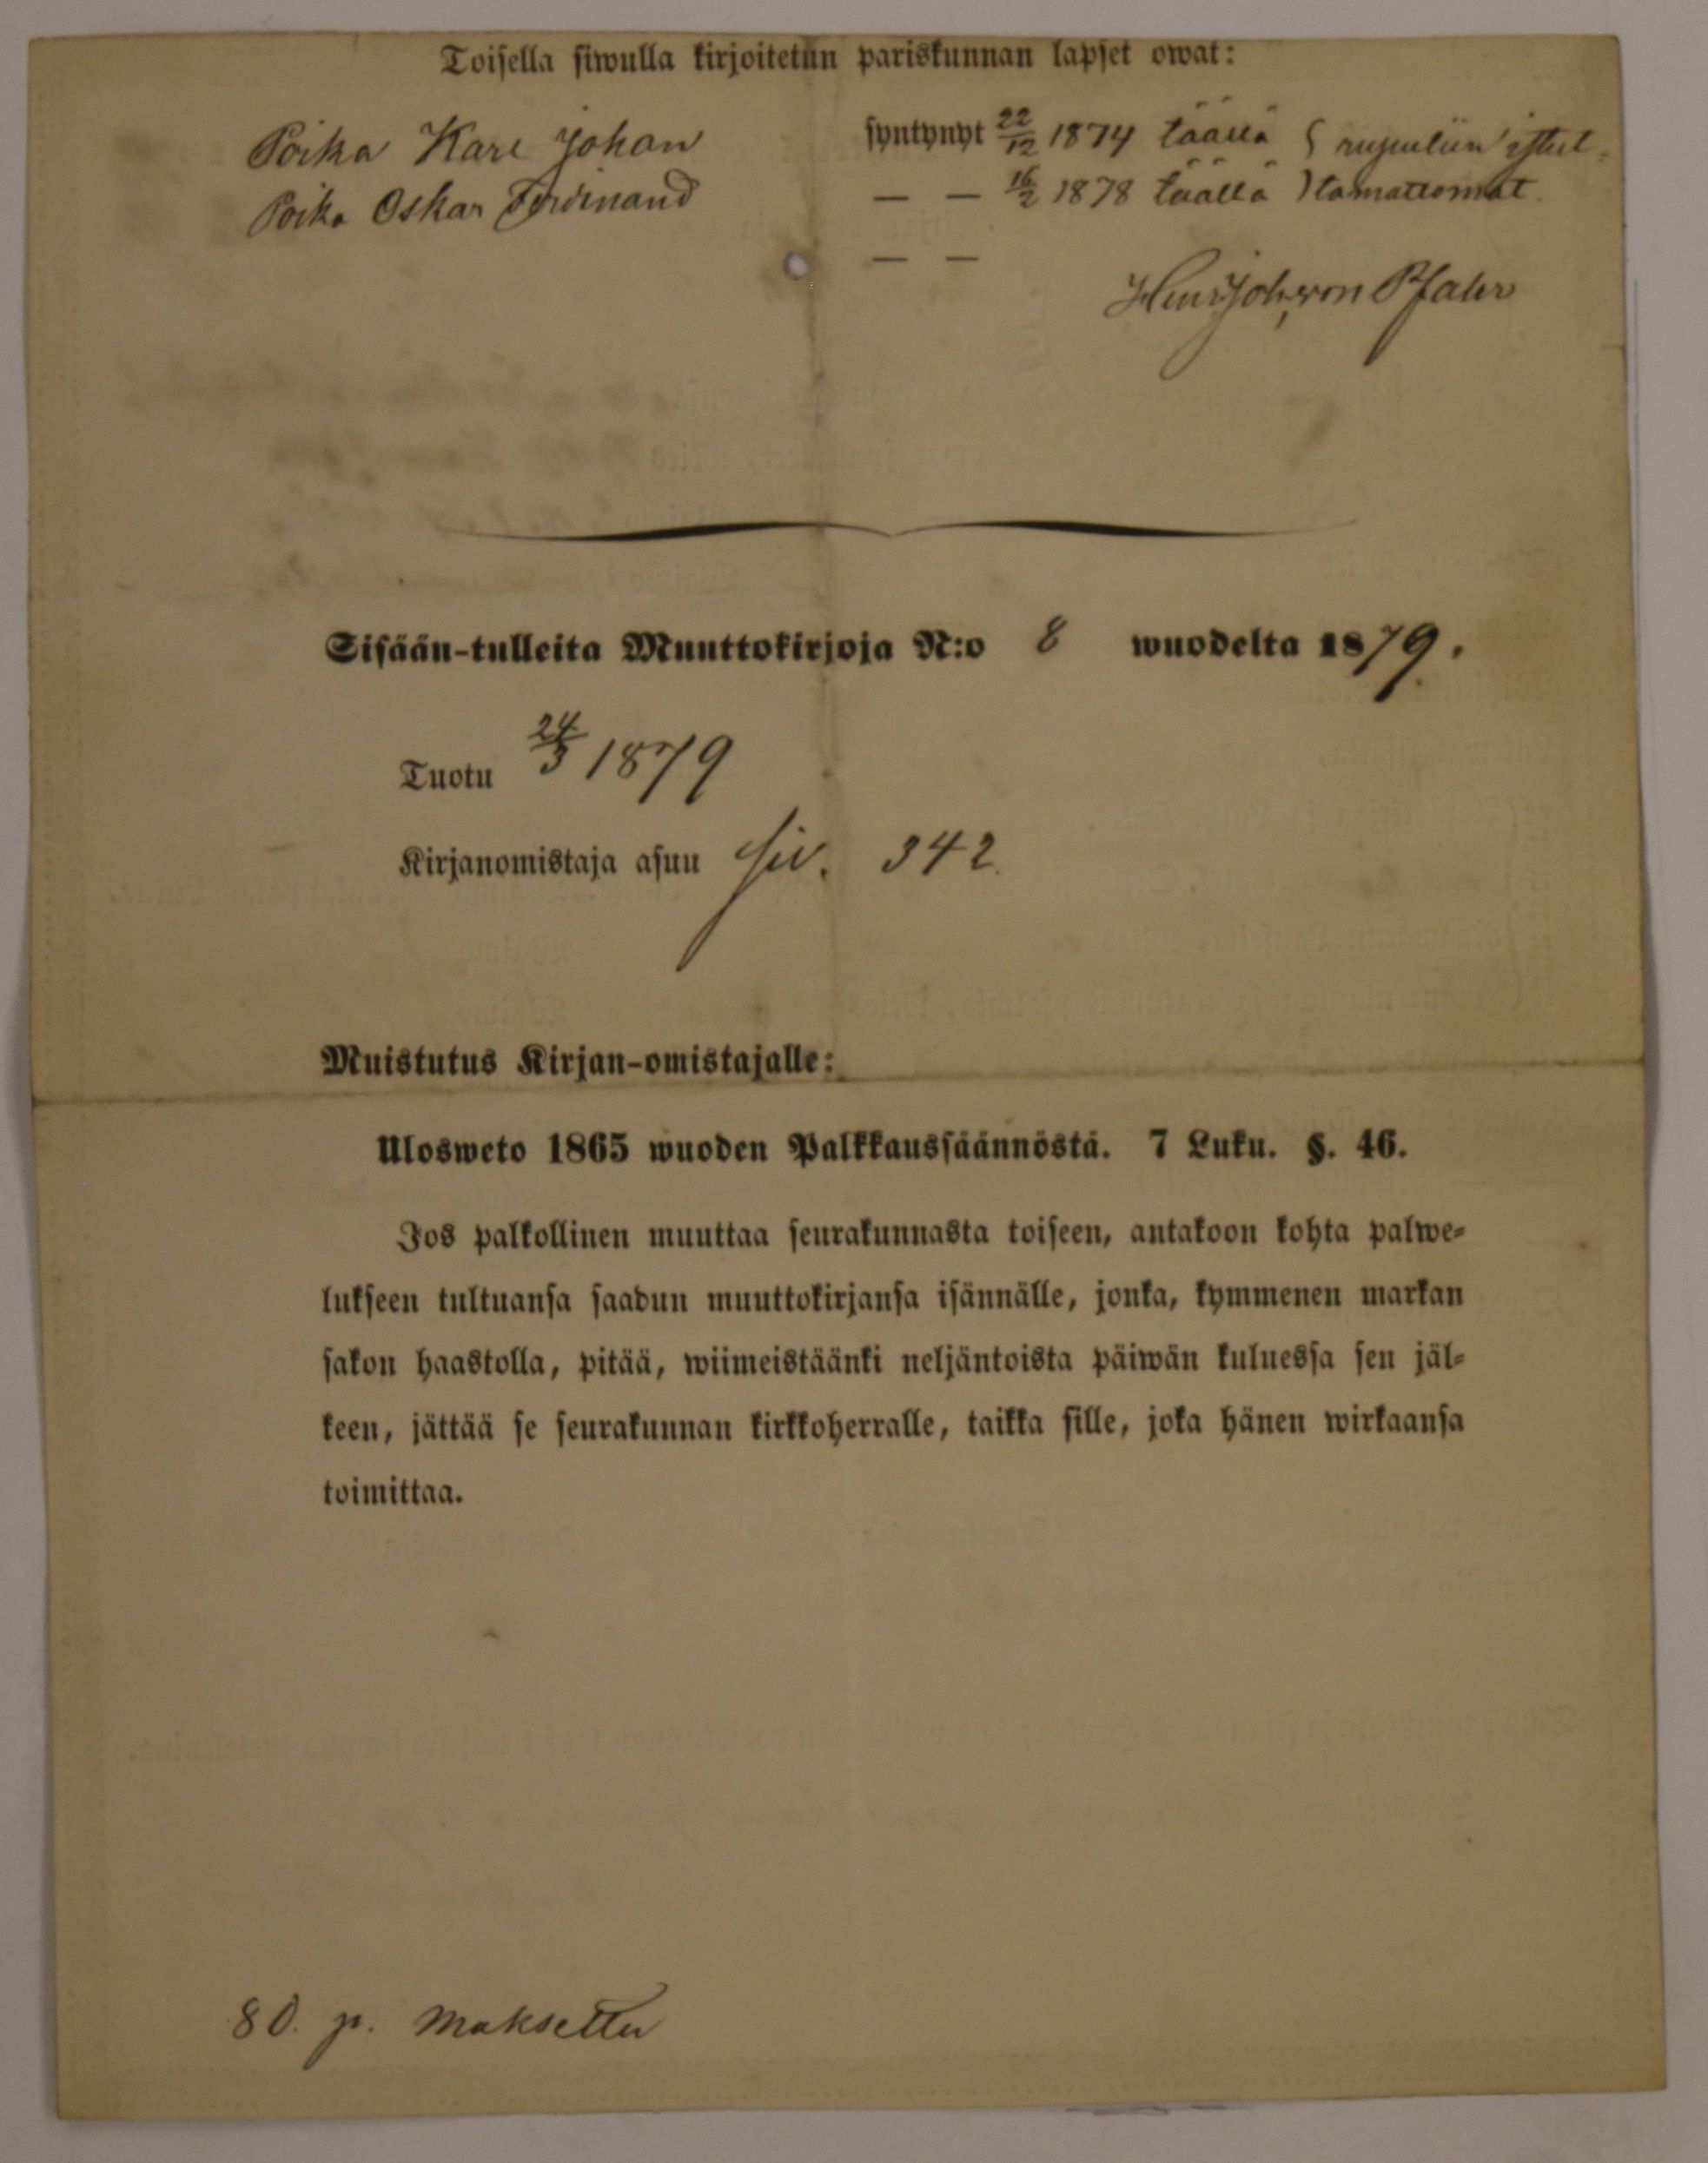 Toisella siwulla kirjoitetun pariskunnan lapset owat:
Poika Karl Johan syntynyt 22/12 1874 täällä
Poika Oskar Ferdinand — — 16/2 1878 täällä
— —
Sisään-tulleita Muuttokirjoja N:o 8 wuodelta 1879.
Tuotu 24/3 1879
Kirjanomistaja asuu siv. 342.
Muistutus Kirjan-omistajalle:
Ulosweto 1865 wuoden Palkkaussäännöstä. 7 Luku. §. 46.
Jos palkollinen muuttaa seurakunnasta toiseen, antakoon kohta palwe-
lukseen tultuansa saadun muuttokirjansa isännälle, jonka, kymmenen markan
sakon haastolla, pitää, wiimeistäänki neljäntoista päiwän kuluessa sen jäl-
keen, jättää se seurakunnan kirkkoherralle, taikka sille, joka hänen wirkaansa
toimittaa.
80. p. Maksettu